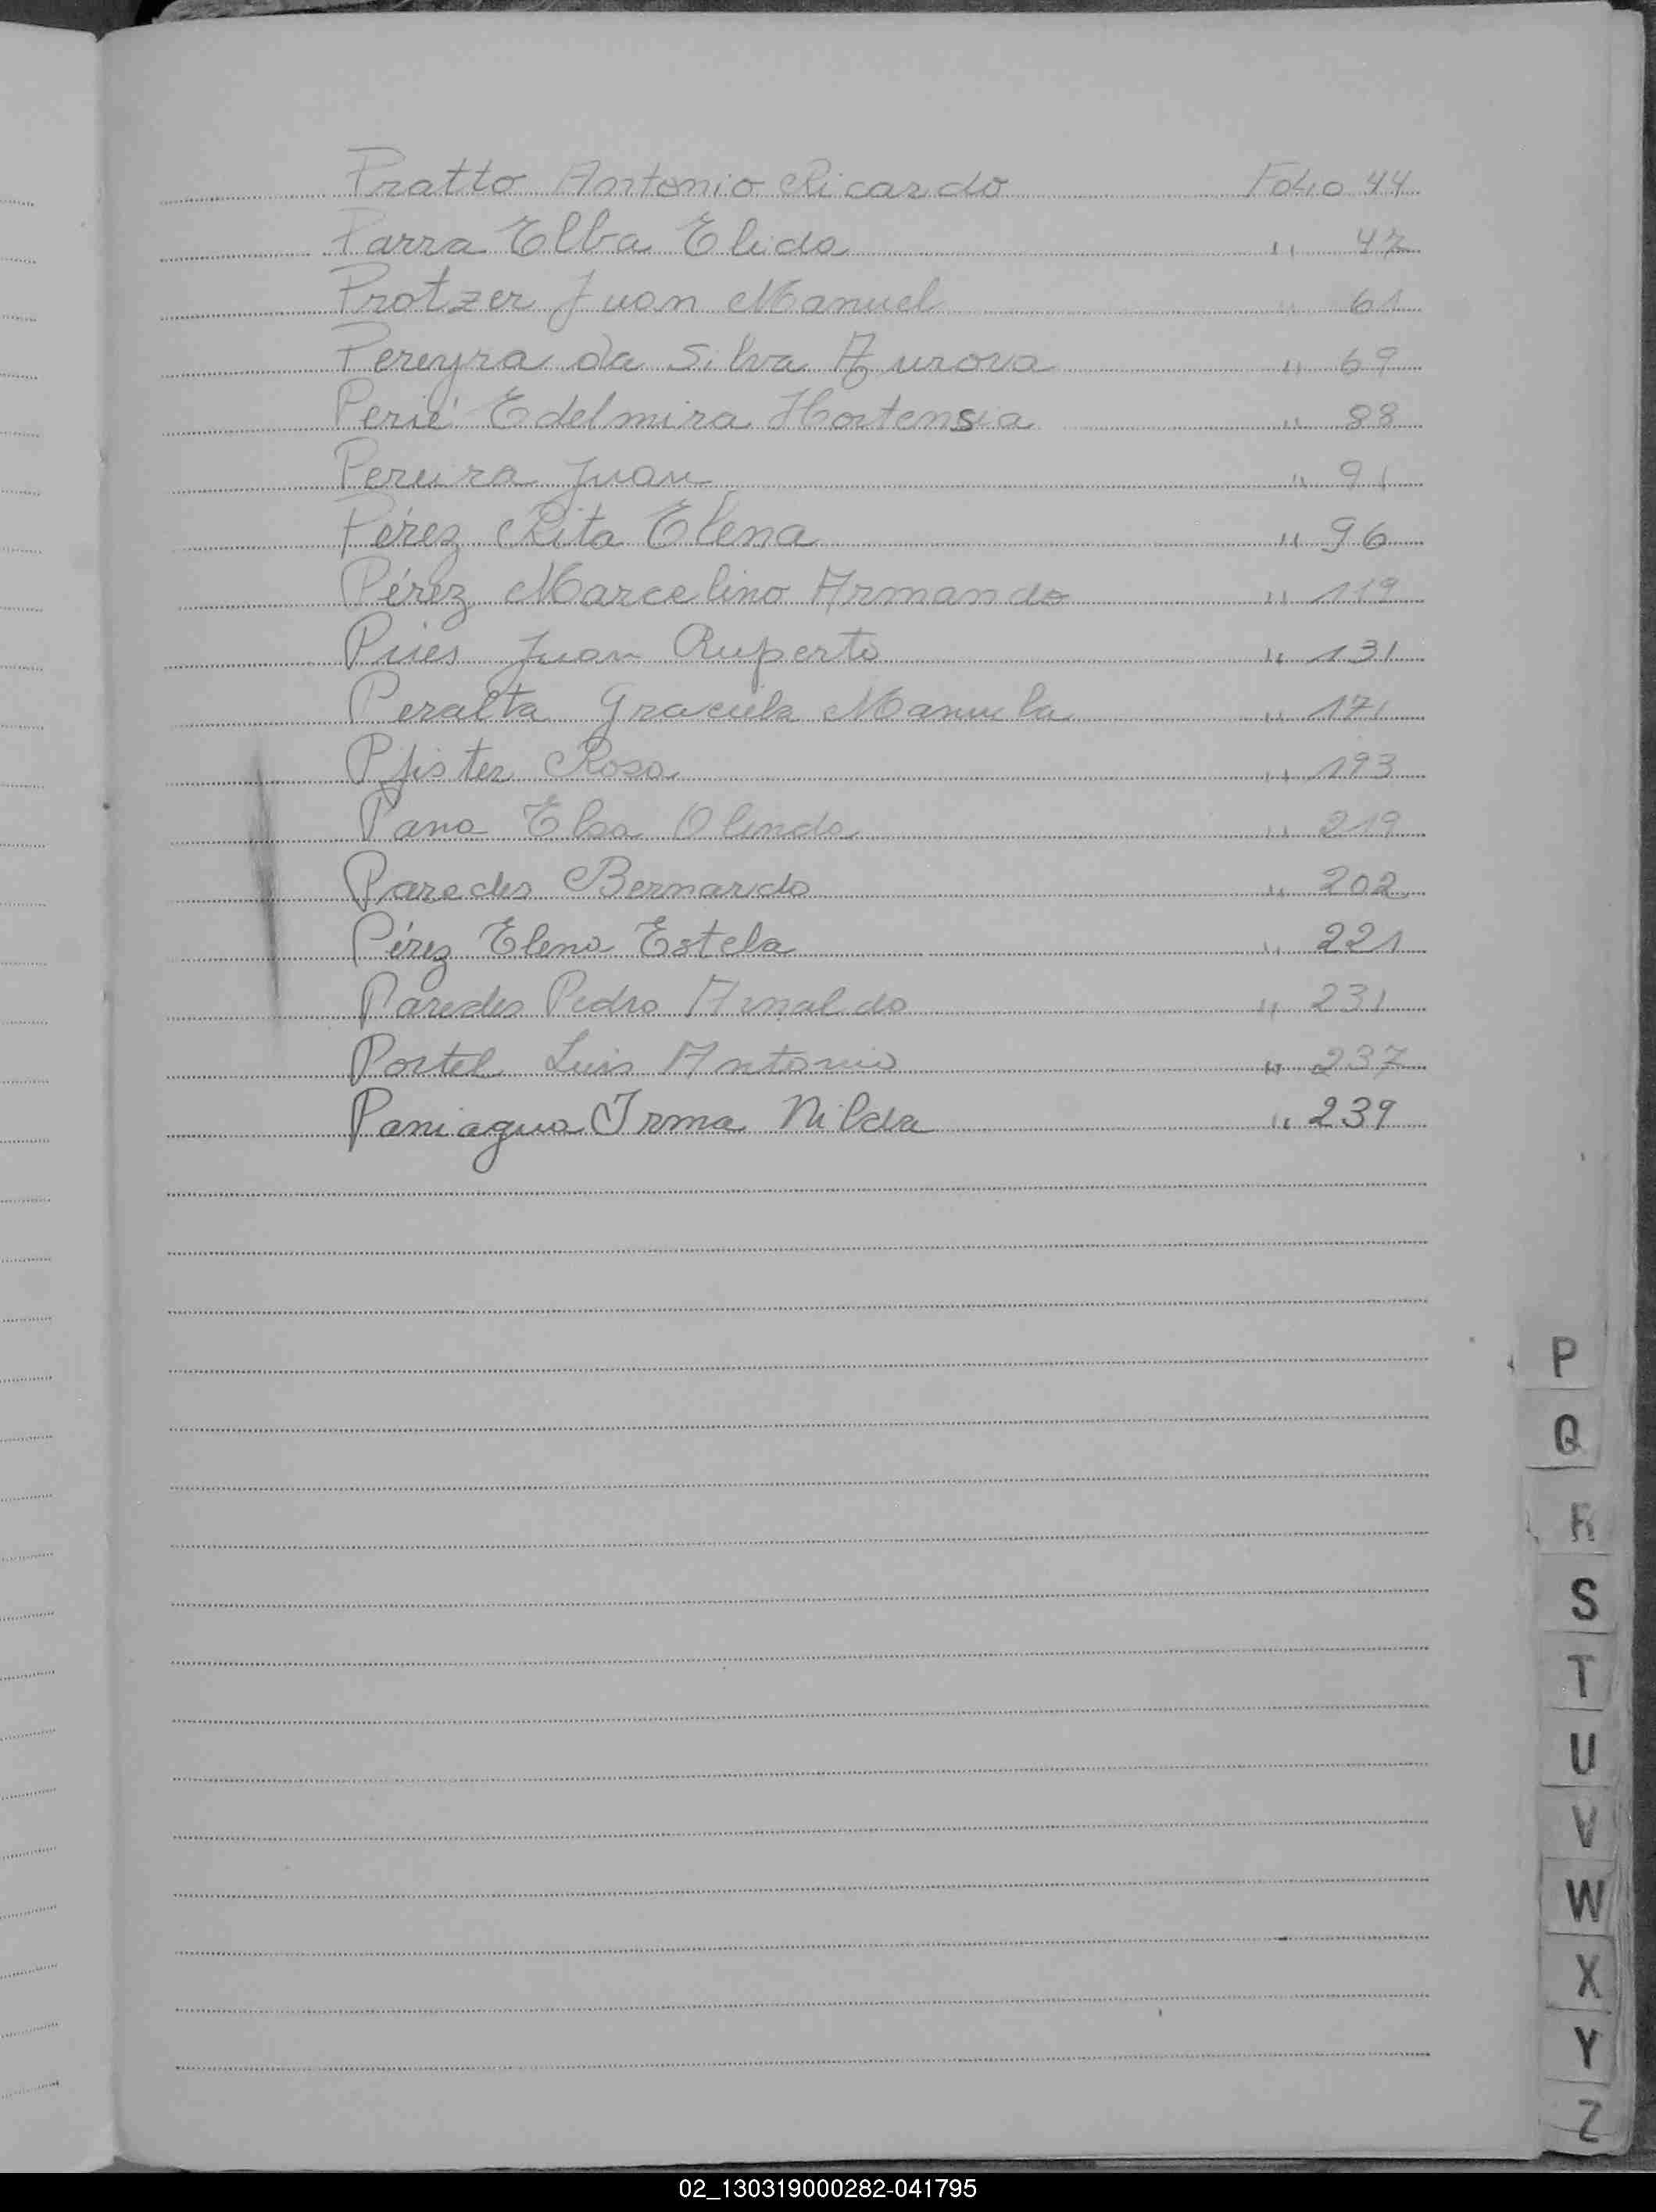 Pratto Antonio Ricardo Folio 44
Parra Elba Elida " 47
Protzer Juan Manuel " 61
Pereyra da Silva Aurora " 69
Perié Edelmira Hortensia " 88
Pereira Juan " 91
Pérez Rita Elena " 96
Pérez Marcelino Armando " 119
Pies Juan Ruperto " 131
Peralta Graciela Manuela " 171
Pfister Rosa " 193
Pano Elsa Olinda " 219
Paredes Bernardo " 202
Pérez Elena Estela " 221
Paredes Pedro Arnaldo " 231
Portel Luis Antonio " 237
Paniagua Irma Nilda " 239
P
Q
R
S
T
U
V
W
X
Y
Z
02_130319000282-041795